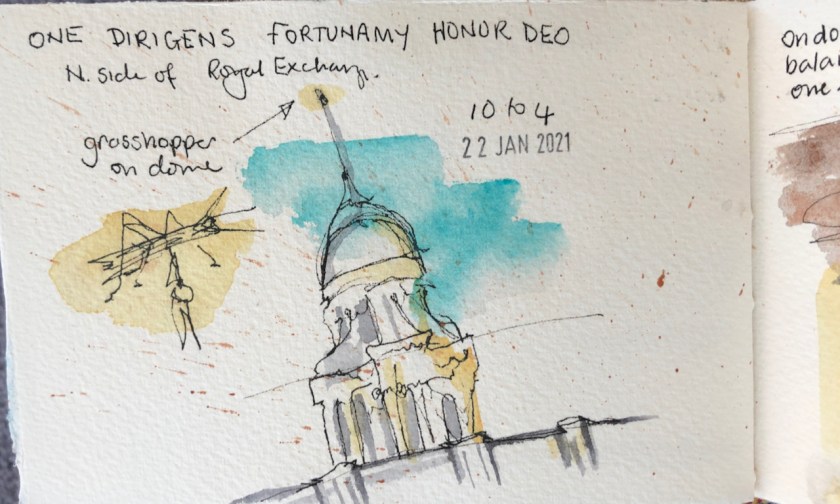 ONE DIRIGENS FORTUNAMY HONOR DEO
N. side of Royal Exchange.
10 to 4
22 JAN 2021
grasshopper
on dome
on do
bala
one